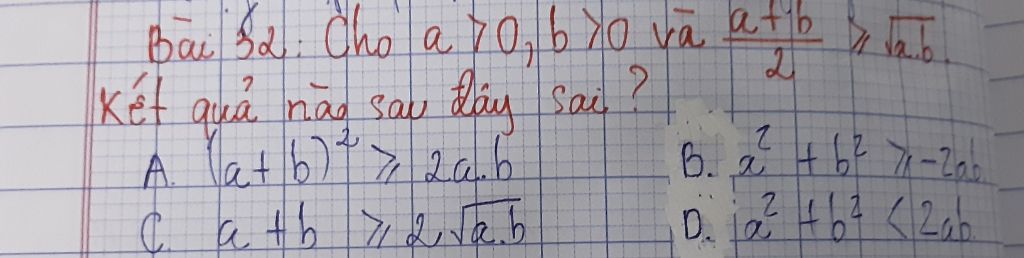 Bài 32: Cho a > 0, b > 0 và (a+b)/2 ≥ √a.b.
Kết quả nào sau đây sai?
A. (a + b)² ≥ 2a.b B. a² + b² ≥ -2ab
C. a + b ≥ 2√a.b D. a² + b² < 2ab